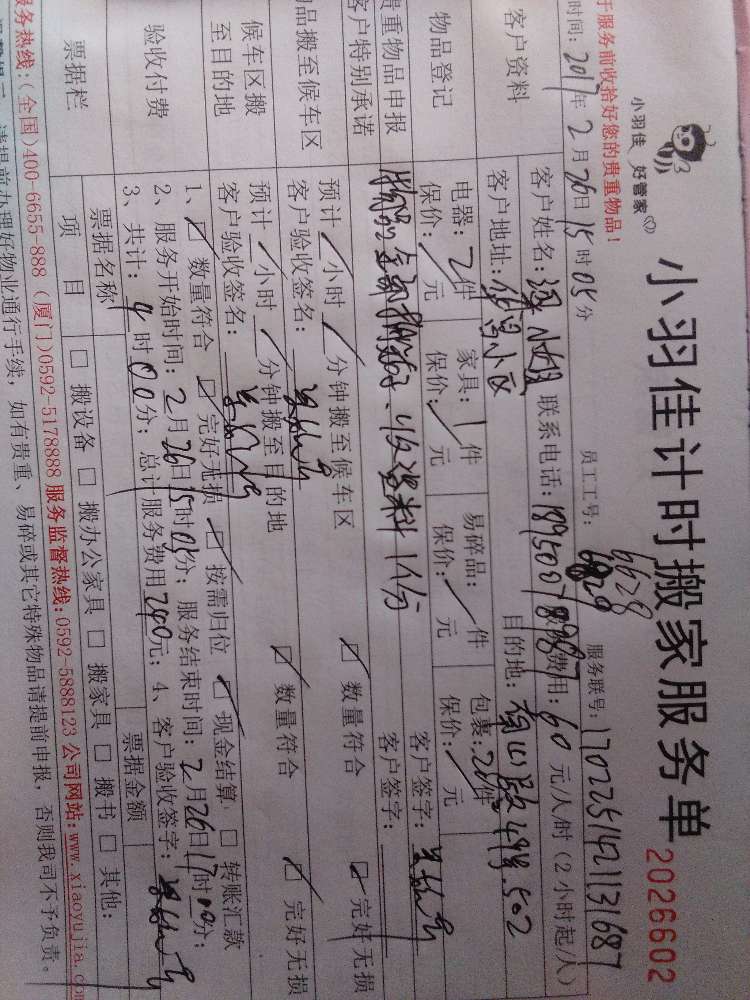 小羽佳 好管家
小羽佳计时搬家服务单 2026602
于服务前收拾好您的贵重物品！
员工工号：6628 6829 服务联号：1702251421131687
时间：2017年2月26日15时05分
客户资料
客户姓名： 小姐 联系电话： 费用：60元/人/时(2小时起/人)
客户地址： 昌小区 目的地： 502
物品登记
电器：2件 家具：1件 易碎品： 件 包裹：20件 客户签字：
保价： 元 保价： 元 保价： 元 保价： 元
贵重物品申报
客户特别承诺
物品全部 收 料1份 客户签字：
物品搬至候车区
预计 小时 分钟搬至候车区 数量符合 完好无损
客户验收签名：
候车区搬至目的地
预计 小时 分钟搬至目的地 数量符合 完好无损
客户验收签名：
验收付费
1、 数量符合 完好无损 按需归位 现金结算 转账汇款
2、服务开始时间：2月26日15时05分；服务结束时间：2月26日17时00分；
3、共计：4时00分；总计服务费用240元；4、客户验收签字：
票据栏
票据名称 票据金额
项目 搬设备 搬办公家具 搬家具 搬书 其他：
服务热线：(全国)400-6655-888 (厦门)0592-5178888 服务监督热线：0592-5888123 公司网站：www.xiaoyujia.co
请提前办理好物业通行手续，如有贵重、易碎或其它特殊物品请提前申报，否则我司不予负责。